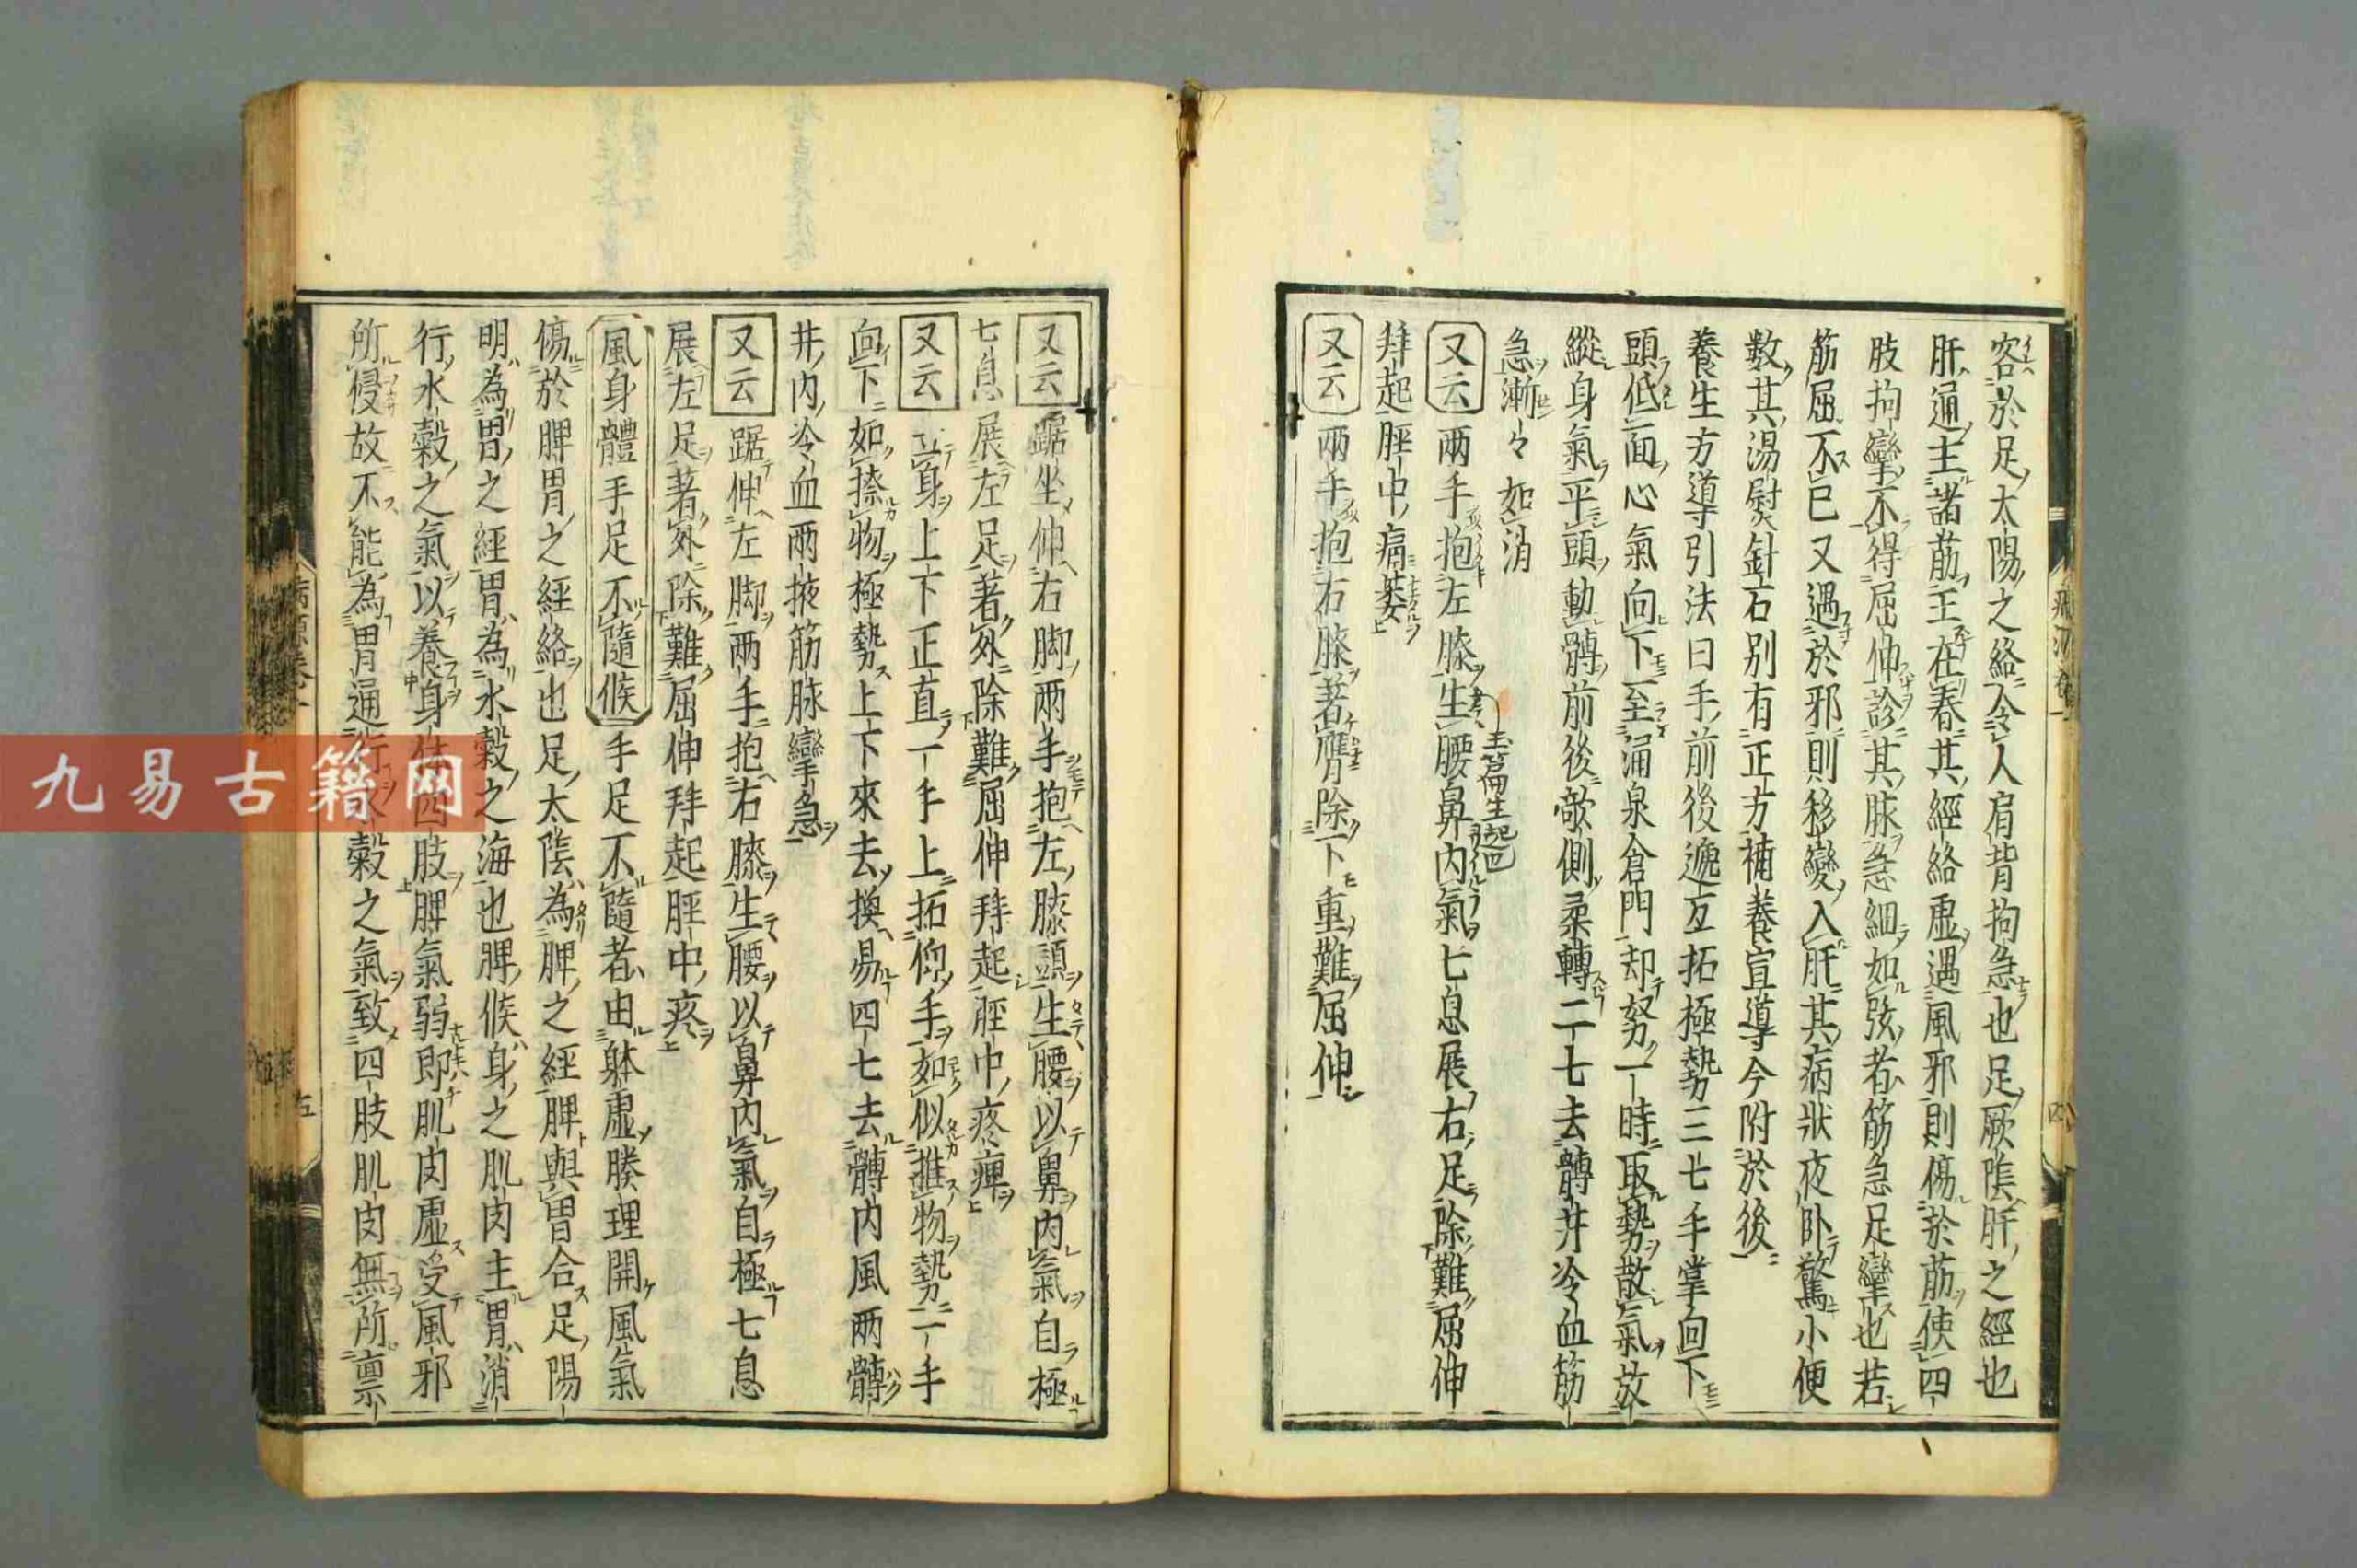 客於足太陽之絡令人肩背拘急也足厥陰肝之經也
肝通主諸筋王在春其經絡虛遇風邪則傷於筋使四
肢拘攣不得屈伸診其脉急細如弦者筋急足攣也若
筋屈不已又遇於邪則移變入肝其病狀夜卧驚小便
數其湯熨針石別有正方補養宣導今附於後
養生方導引法曰手前後遞互拓極勢三七手掌向下
頭低面心氣向下至涌泉倉門却努一時取勢散氣放
縱身氣平頭動髆前後欹側柔轉二七去髆井冷血筋
急漸々如消
又云兩手抱左膝生腰鼻內氣七息展右足除難屈伸
拜起脛中痛萎
又云兩手抱右膝著膺除下重難屈伸
又云踞坐伸右脚兩手抱左膝頭生腰以鼻內氣自極
七息展左足著外除難屈伸拜起脛中疼痺
又云立身上下正直一手上拓仰手如似推物勢一手
向下如捺物極勢上下來去換易四七去髆內風兩髆
井內冷血兩掖筋脉攣急
又云踞伸左脚兩手抱右膝生腰以鼻內氣自極七息
展左足著外除難屈伸拜起脛中疼
風身體手足不隨候手足不隨者由躰虛腠理開風氣
傷於脾胃之經絡也足太陰為脾之經脾與胃合足陽
明為胃之經胃為水穀之海也脾候身之肌肉主胃消
行水穀之氣以養身體四肢脾氣弱即肌肉虛受風邪
所侵故不能為胃通行水穀之氣致四肢肌肉無所稟
病源卷一
五
九易古籍网